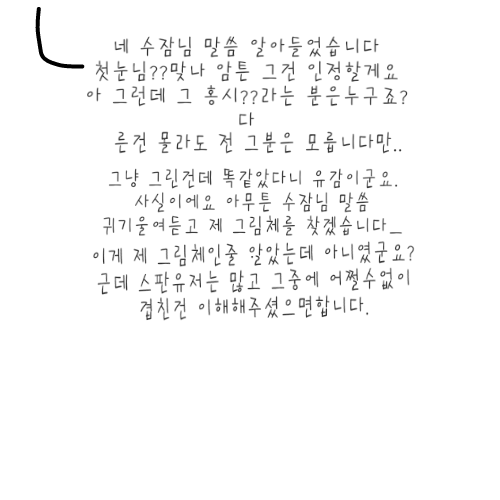 네 수잠님 말씀 알아들었습니다
첫눈님??맞나 암튼 그건 인정할게요
아 그런데 그 홍시??라는 분은누구죠?
다
른건 몰라도 전 그분은 모릅니다만..
그냥 그린건데 똑같았다니 유감이군요.
사실이에요 아무튼 수잠님 말씀
귀기울여듣고 제 그림체를 찾겠습니다_
이게 제 그림체인줄 알았는데 아니였군요?
근데 스판유저는 많고 그중에 어쩔수없이
겹친건 이해해주셨으면합니다.